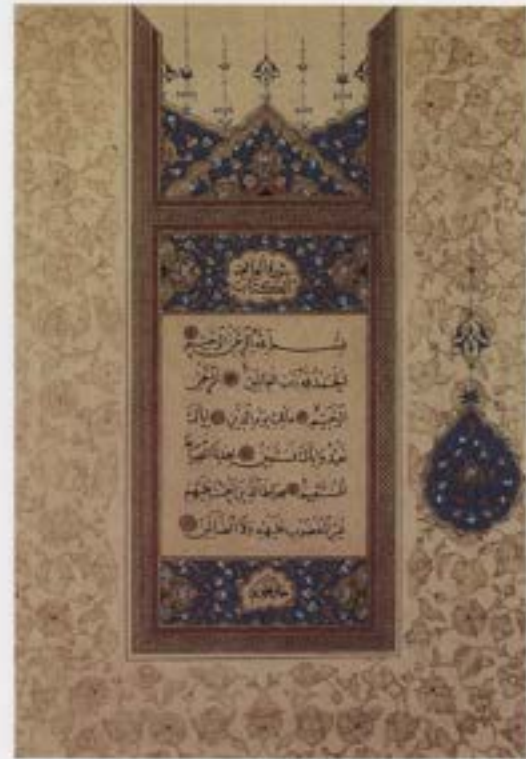 سورة الفاتحة
الكتاب
بسم الله الرحمن الرحيم
الحمد لله رب العالمين الرحمن
الرحيم مالك يوم الدين إياك
نعبد وإياك نستعين اهدنا الصراط
المستقيم صراط الذين أنعمت عليهم
غير المغضوب عليهم ولا الضالين